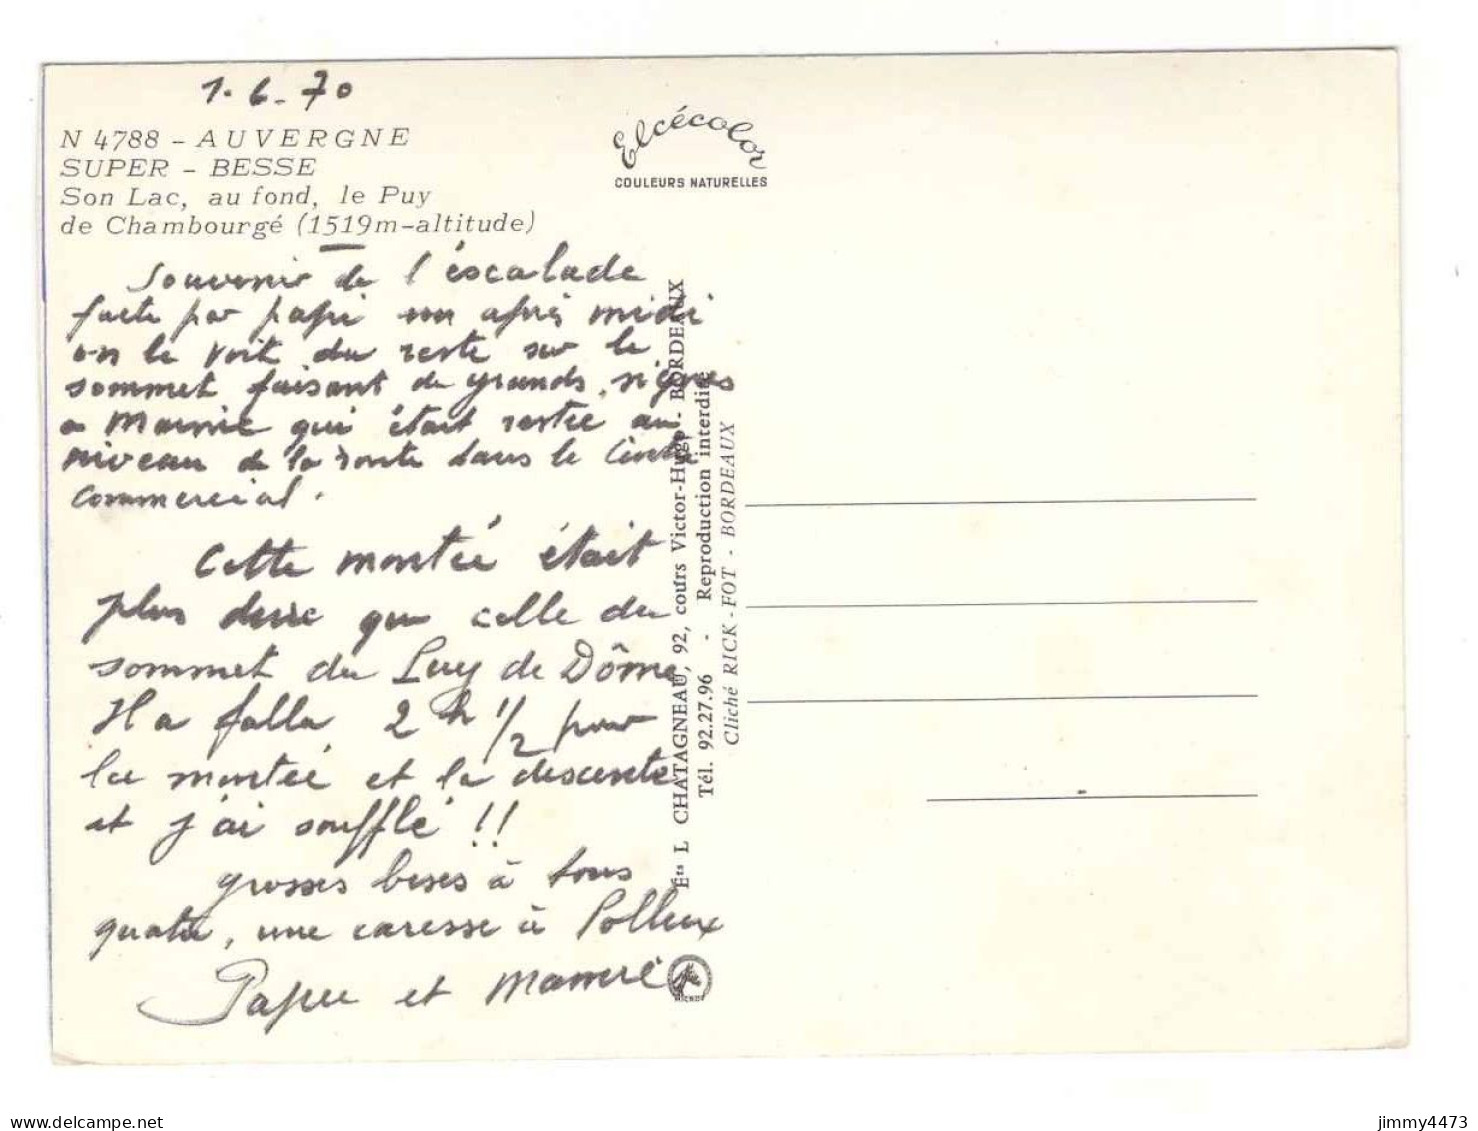 1.6.70
N 4788 - AUVERGNE
SUPER - BESSE
Son Lac, au fond, le Puy
de Chambourgé (1519m-altitude)
Souvenir de l'éscalade
faite par papi un après midi
on le voit du reste sur le
sommet faisant de grands signes
a Mamie qui était restée au
niveau de la route dans le Centre
commercial.
Cette montée était
plus dure que celle du
sommet du Puy de Dôme
Il a fallu 2 h 1/2 pour
la montée et la descente
et j'ai soufflé !!
grosses bises à tous
quatre, une caresse à Pollux
Papie et Mamie
Elcécolor
COULEURS NATURELLES
Éts L CHATAGNEAU, 92, cours Victor-Hugo - BORDEAUX
Tél. 92.27.96 - Reproduction interdite
Cliché RICK-FOT - BORDEAUX
jimmy4473
www.delcampe.net